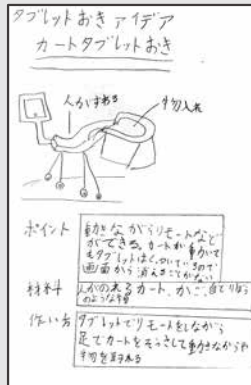 タブレットおき アイデア
カートタブレットおき
人がすわる
小物入れ
ポイント
動きながらリモートなど
ができる。カートが動いて
もタブレットはくっついているので
画面から消えることがない
材料
人がのれるカート、かご、自どりぼう
のような棒
作り方
タブレットでリモートをしながら
足でカートをそうさして動きながらや
小物を取れる